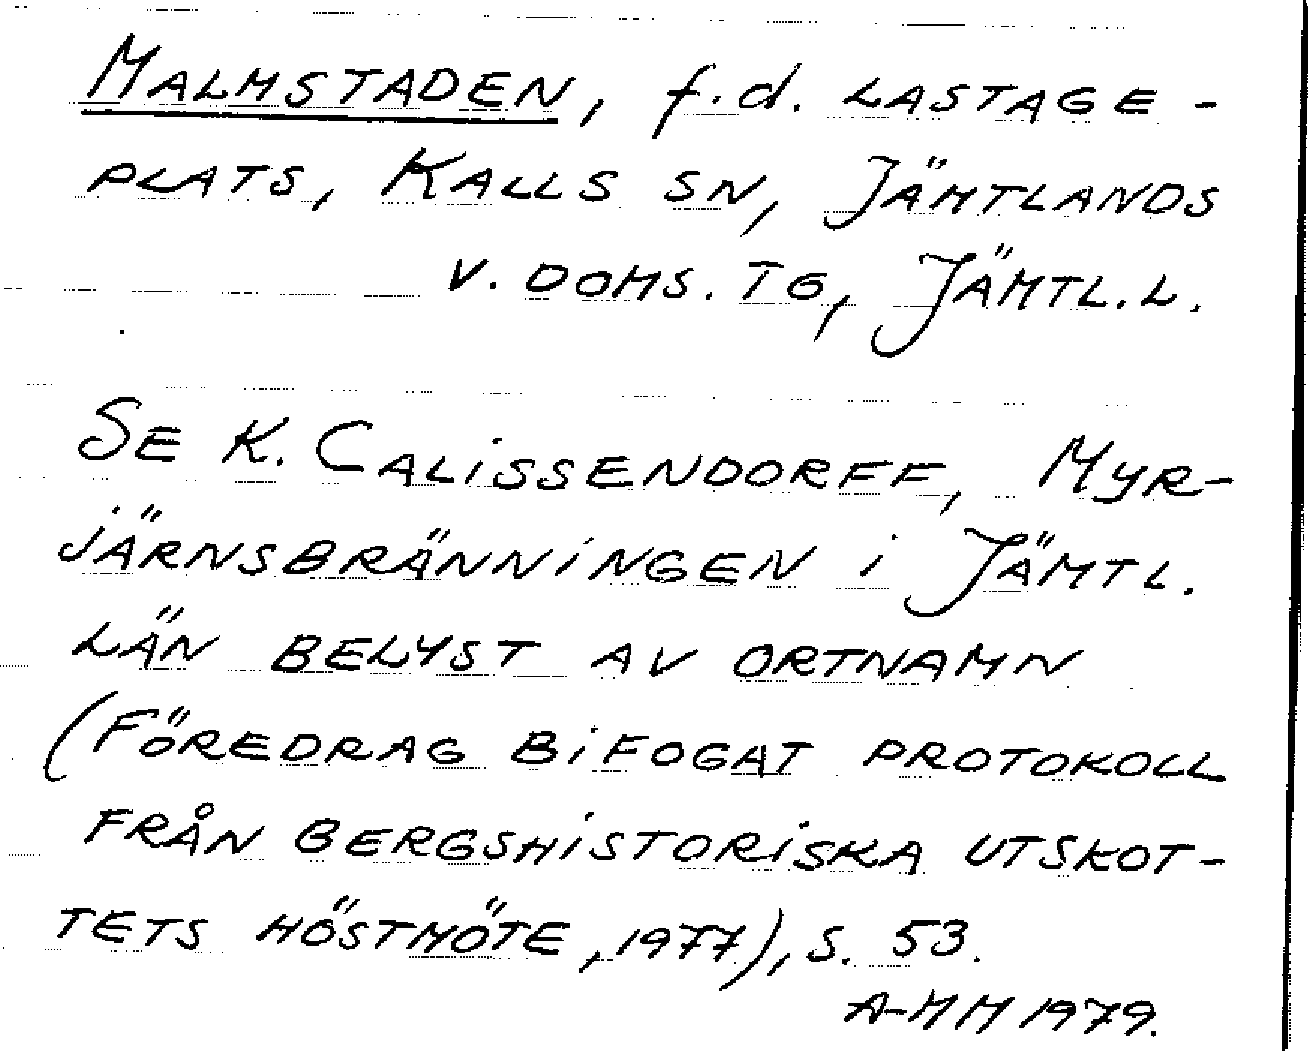 MALMSTADEN, f.d. LASTAGE-
PLATS, KALLS SN, JÄMTLANDS
V. DOMS. TG, JÄMTL.L.
SE K. CALISSENDORFF, MYR-
JÄRNSBRÄNNINGEN I JÄMTL.
LÄN BELYST AV ORTNAMN
(FÖREDRAG BIFOGAT PROTOKOLL
FRÅN BERGSHISTORISKA UTSKOT-
TETS HÖSTMÖTE, 1977), S. 53.
A-MM 1979.